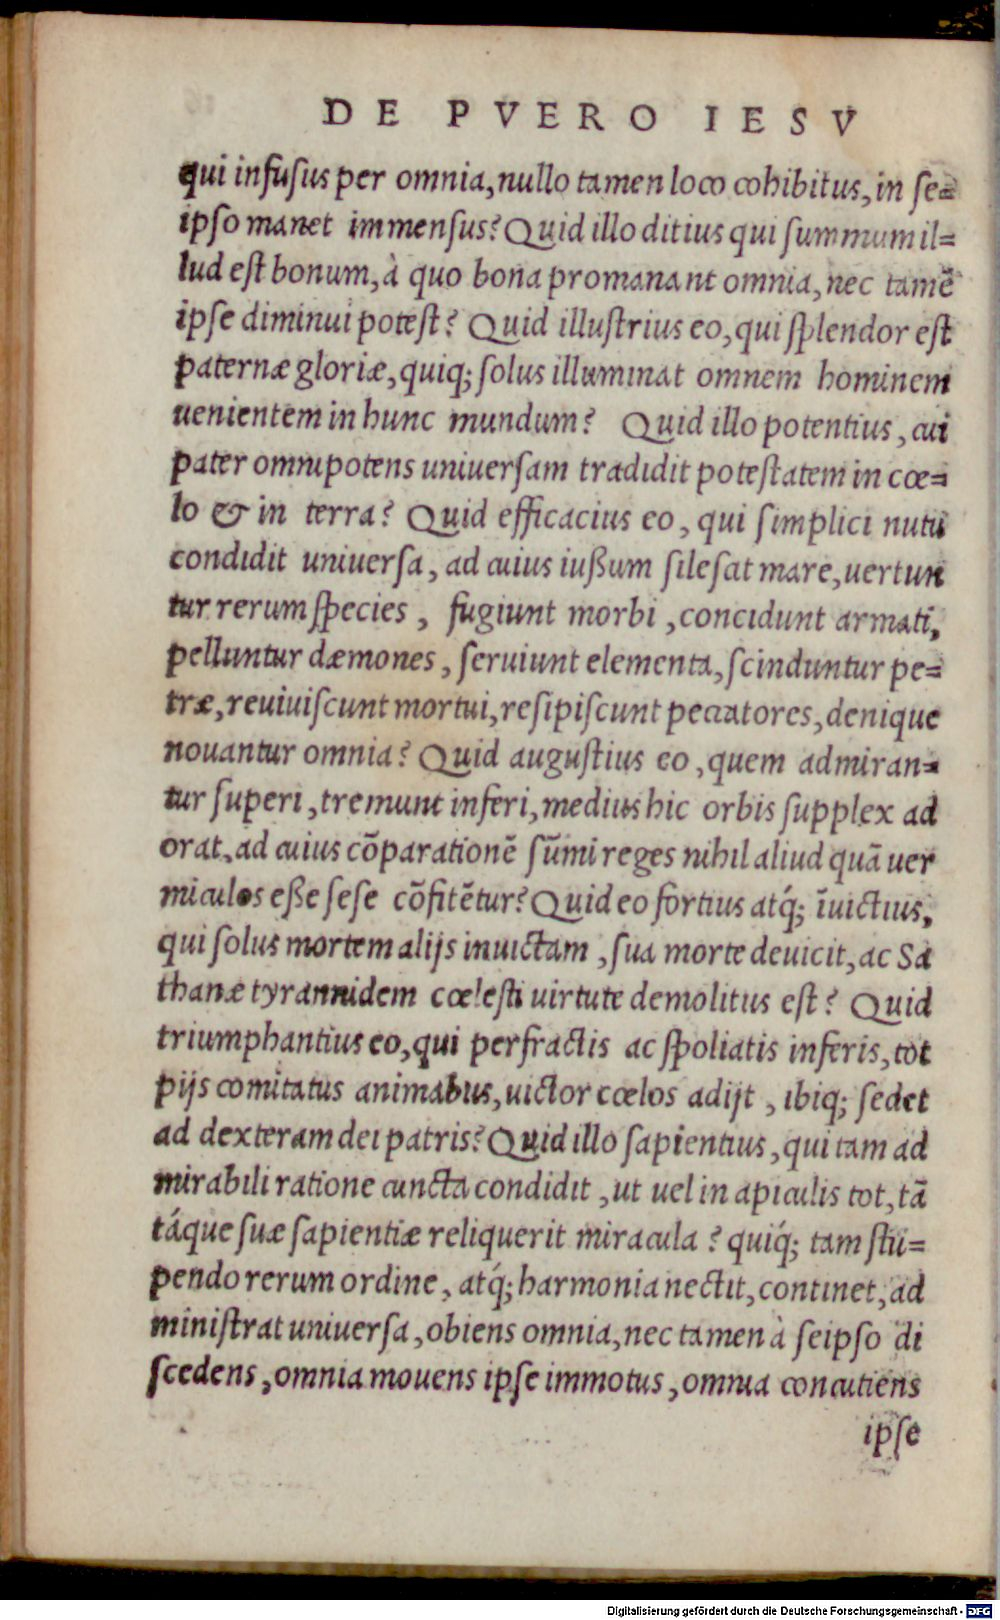 DE PVERO IESV
qui infuſus per omnia, nullo tamen loco cohibitus, in ſe=
ipſo manet immenſus? Quid illo ditius qui ſummum il=
lud eſt bonum, à quo bona promanant omnia, nec tamẽ
ipſe diminui poteſt? Quid illuſtrius eo, qui ſplendor eſt
paternæ gloriæ, quiq; ſolus illuminat omnem hominem
uenientem in hunc mundum? Quid illo potentius, cui
pater omnipotens uniuerſam tradidit poteſtatem in cœ=
lo & in terra? Quid efficacius eo, qui ſimplici nutu
condidit uniuerſa, ad cuius iußum ſileſcat mare, uertun
tur rerum ſpecies, fugiunt morbi, concidunt armati,
pelluntur dæmones, ſeruiunt elementa, ſcinduntur pe=
træ, reuiuiſcunt mortui, reſipiſcunt peccatores, denique
nouantur omnia? Quid auguſtius eo, quem admiran=
tur ſuperi, tremunt inferi, medius hic orbis ſupplex ad
orat, ad cuius cõparationẽ ſũmi reges nihil aliud quã uer
miculos eße ſeſe cõfitẽtur? Quid eo fortius atq́; ĩuictius,
qui ſolus mortem alijs inuictam, ſua morte deuicit, ac Sa
thanæ tyrannidem cœleſti uirtute demolitus eſt? Quid
triumphantius eo, qui perfractis ac ſpoliatis inferis, tot
pijs comitatus animabus, uictor cœlos adijt, ibiq; ſedet
ad dexteram dei patris? Quid illo ſapientius, qui tam ad
mirabili ratione cuncta condidit, ut uel in apiculis tot, tã
táque ſuæ ſapientiæ reliquerit miracula? quiq́; tam ſtu=
pendo rerum ordine, atq́; harmonia nectit, continet, ad
miniſtrat uniuerſa, obiens omnia, nec tamen à ſeipſo di
ſcedens, omnia mouens ipſe immotus, omnia concutiens
ipſe
Digitalisierung gefördert durch die Deutsche Forschungsgemeinschaft - DFG